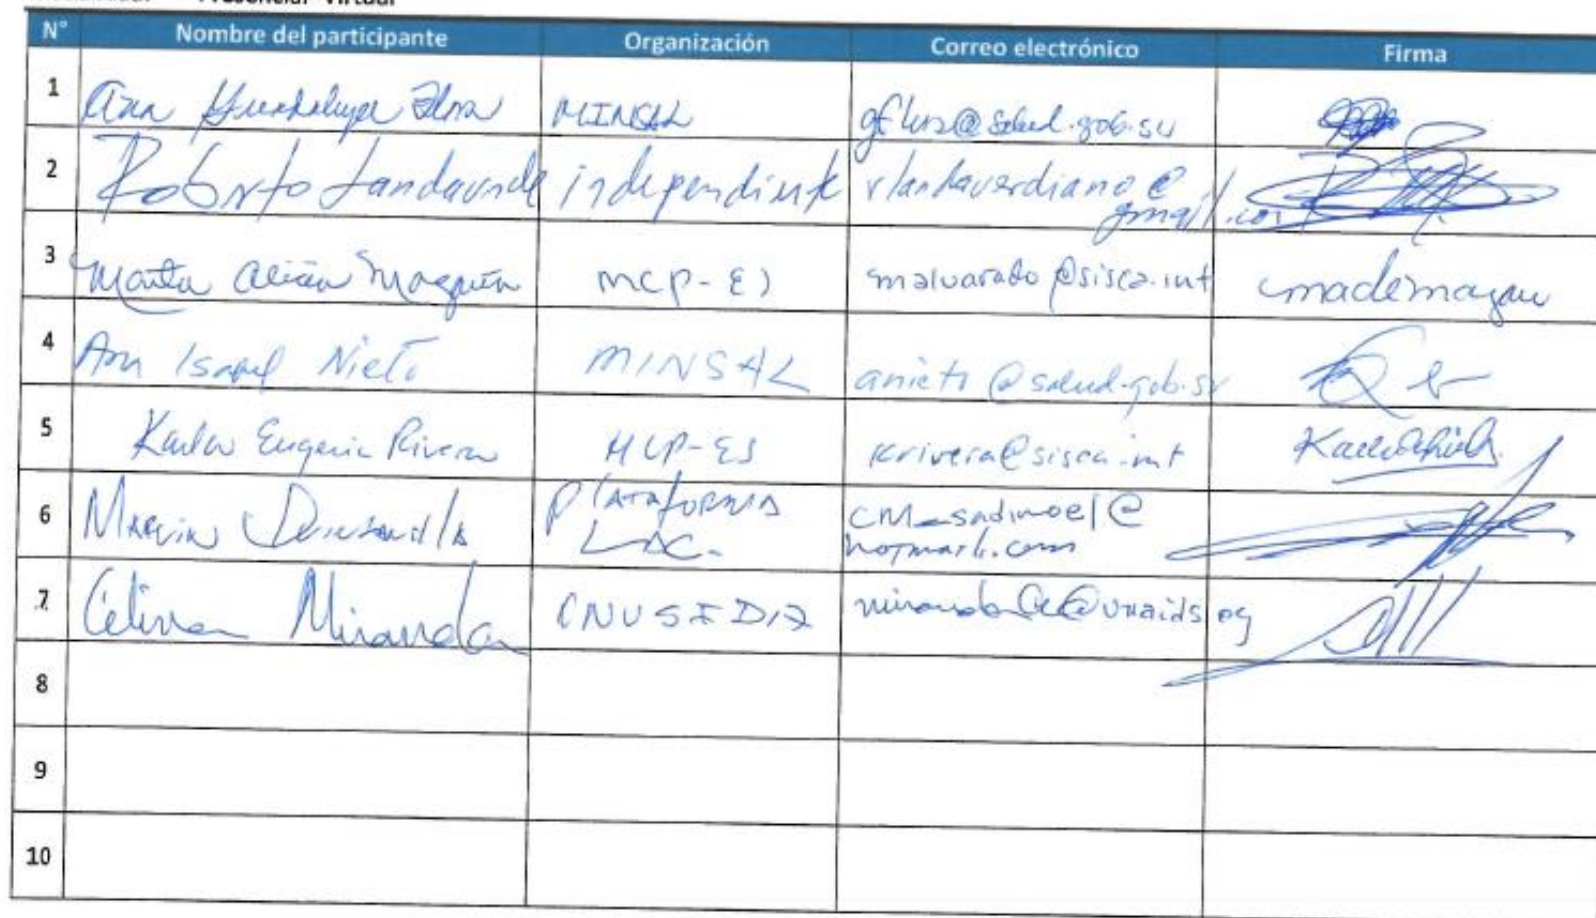 N° Nombre del participante Organización Correo electrónico Firma
1 Ana Guadalupe Flores MINSAL @salud.gob.sv
2 Roberto Landaverde independiente rlandaverdiano@
gmail.com
3 Marta Alicia Magaña MCP-ES malvarado@sisca.int
4 Ana Isabel Nieto MINSAL anieto@salud.gob.sv
5 Karla Eugenia Rivera MCP-ES krivera@sisca.int
6 Marvin Plataforma
LAC.
hotmail.com
7 Celina Miranda ONUSIDA mirandace@unaids.org
8
9
10